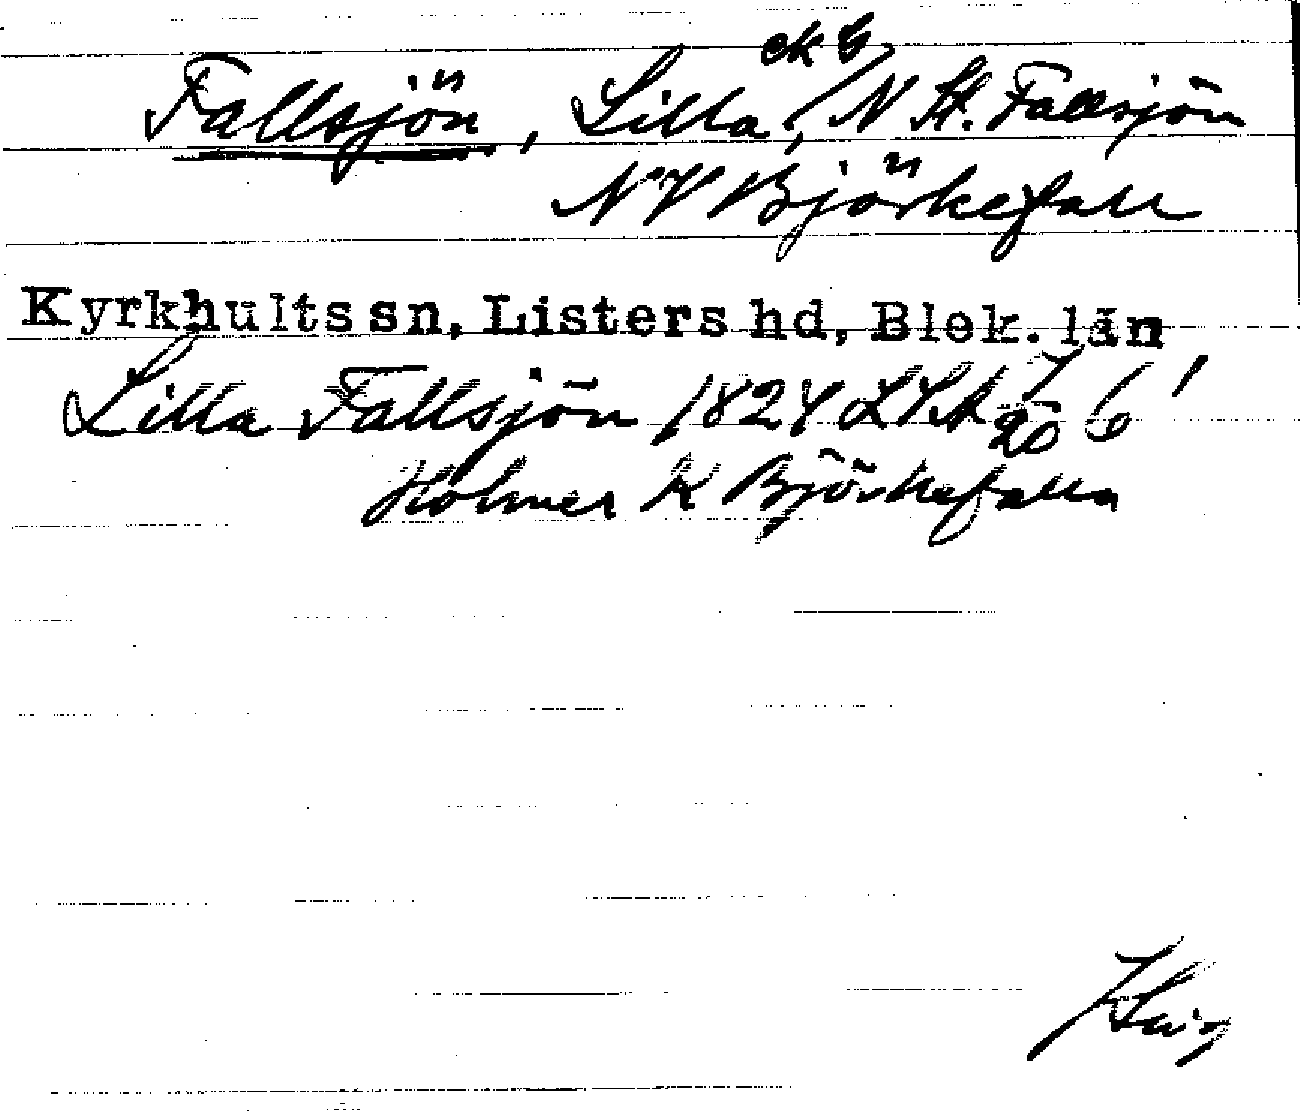 ek 6
Fallsjön, Lilla, N St. Fallsjön
NV Björkefall
Kyrkhults sn, Listers hd, Blek. län
Lilla Fallsjön 1824 LSA 7/20 6'
Holmer K Björkefalla